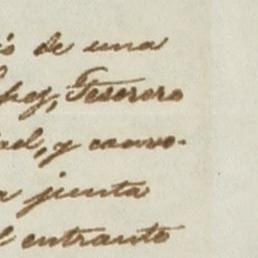 ió de una
Tesorero
y convo-
junta
entrante